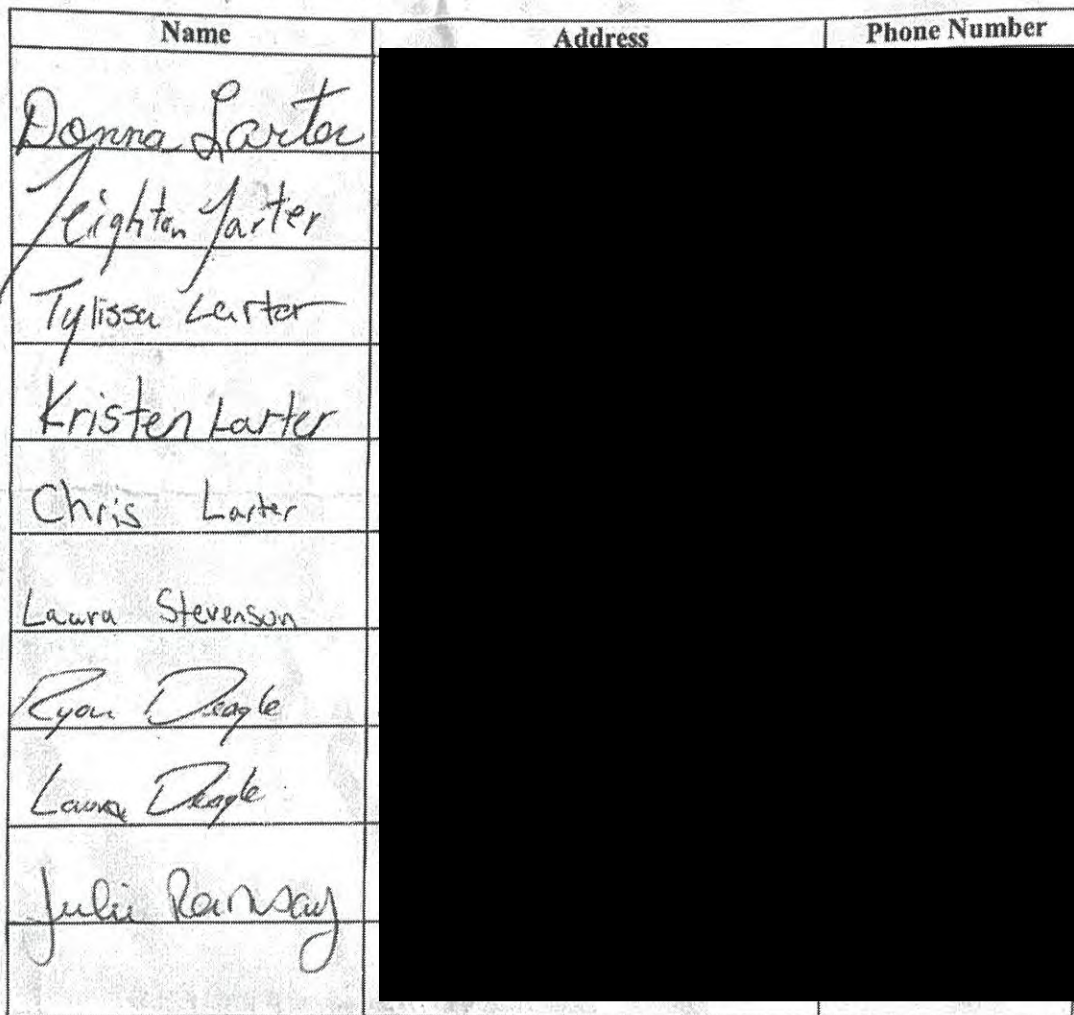 Name Address Phone Number
Donna Larter
Leighton Larter
Tylissa Larter
Kristen Larter
Chris Larter
Laura Stevenson
Ryan Deagle
Laura Deagle
Julie Ramsay